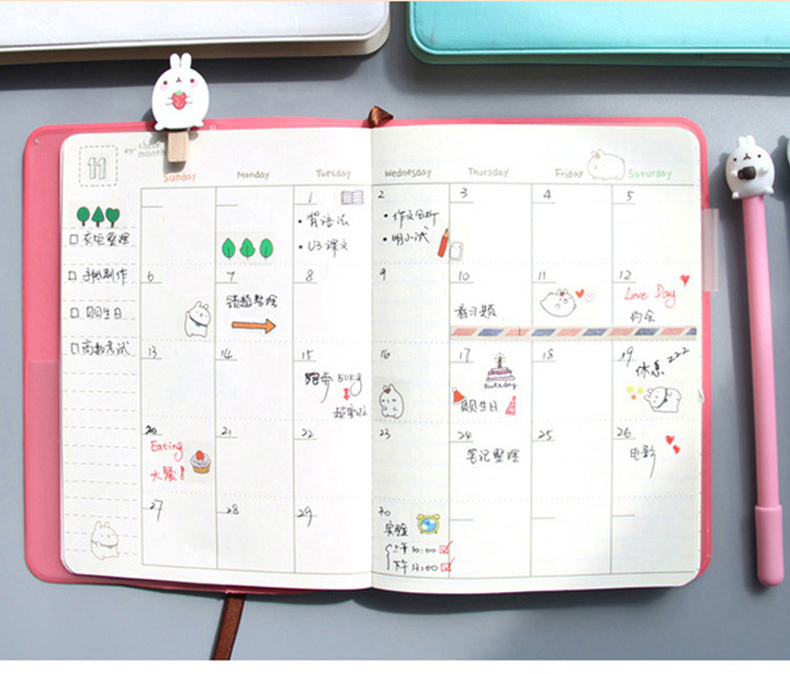 11
check
month
Sunday Monday Tuesday Wednesday Thursday Friday Saturday
整理
手帐制作
贝贝生日
高数考试
1
· 背语法
· U3 课文
2
· 作文分析
· 明小试
3
4
5
6
7
错题整理
8
9
10
看习题
11
12
Love Day
约会
13
14
15
跑步 50kg
16
17
Birthday
贝贝生日
18
19
休息 zzz
20
Eating
大餐!
21
22
23
24
笔记整理
25
26
电影
27
28
29
30
实验
上午 10:00
下午 13:00